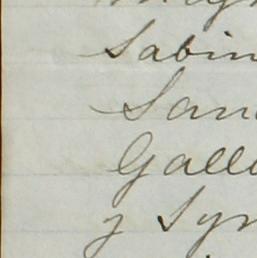 Sabin
San
Gall
y Syr